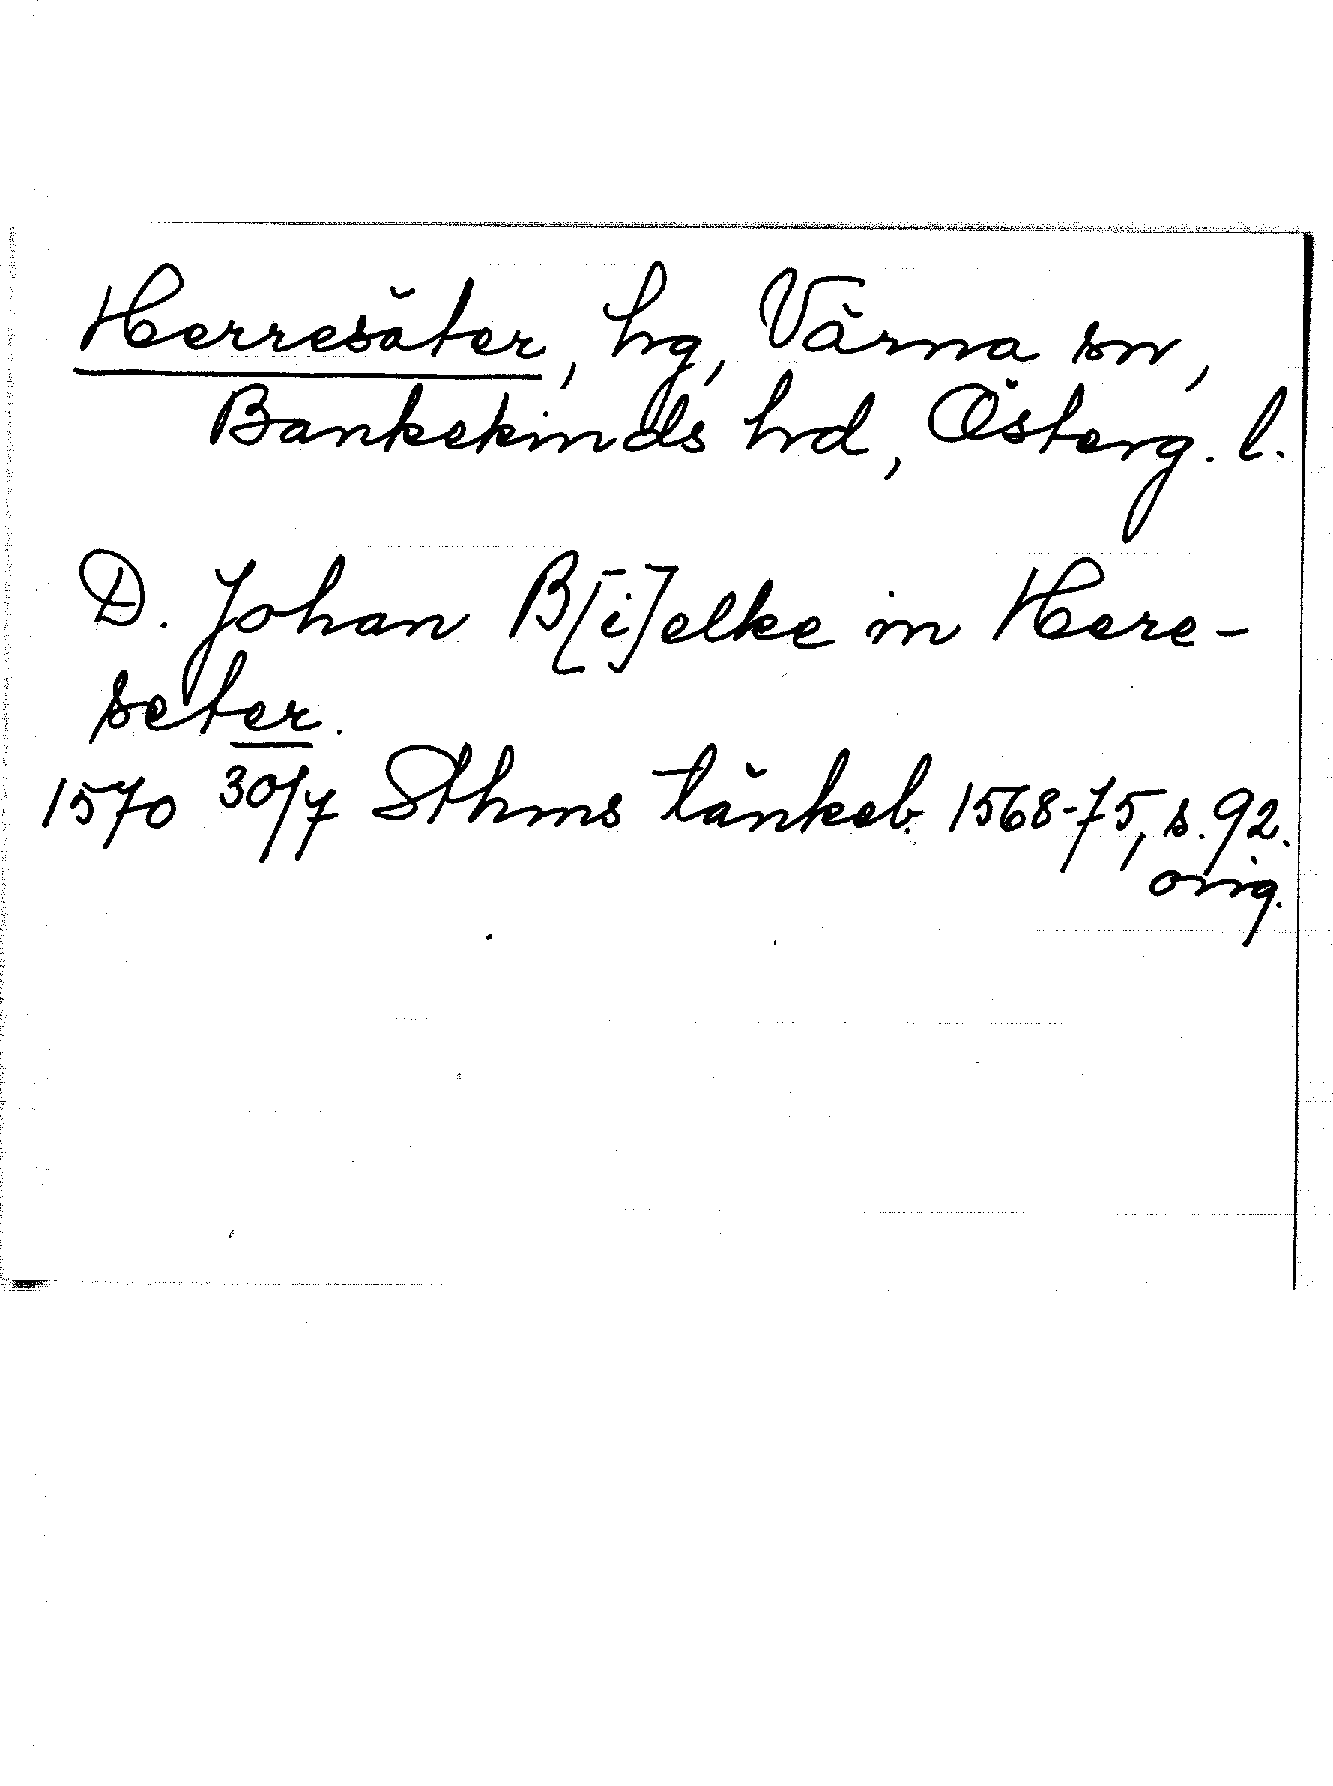 Herresäter, hg, Värna sn,
Bankekinds hd, Österg. l.
D. Johan B[i]elke in Here-
seter.
1570 30/7 Sthms tänkeb. 1568-75, s. 92.
orig.